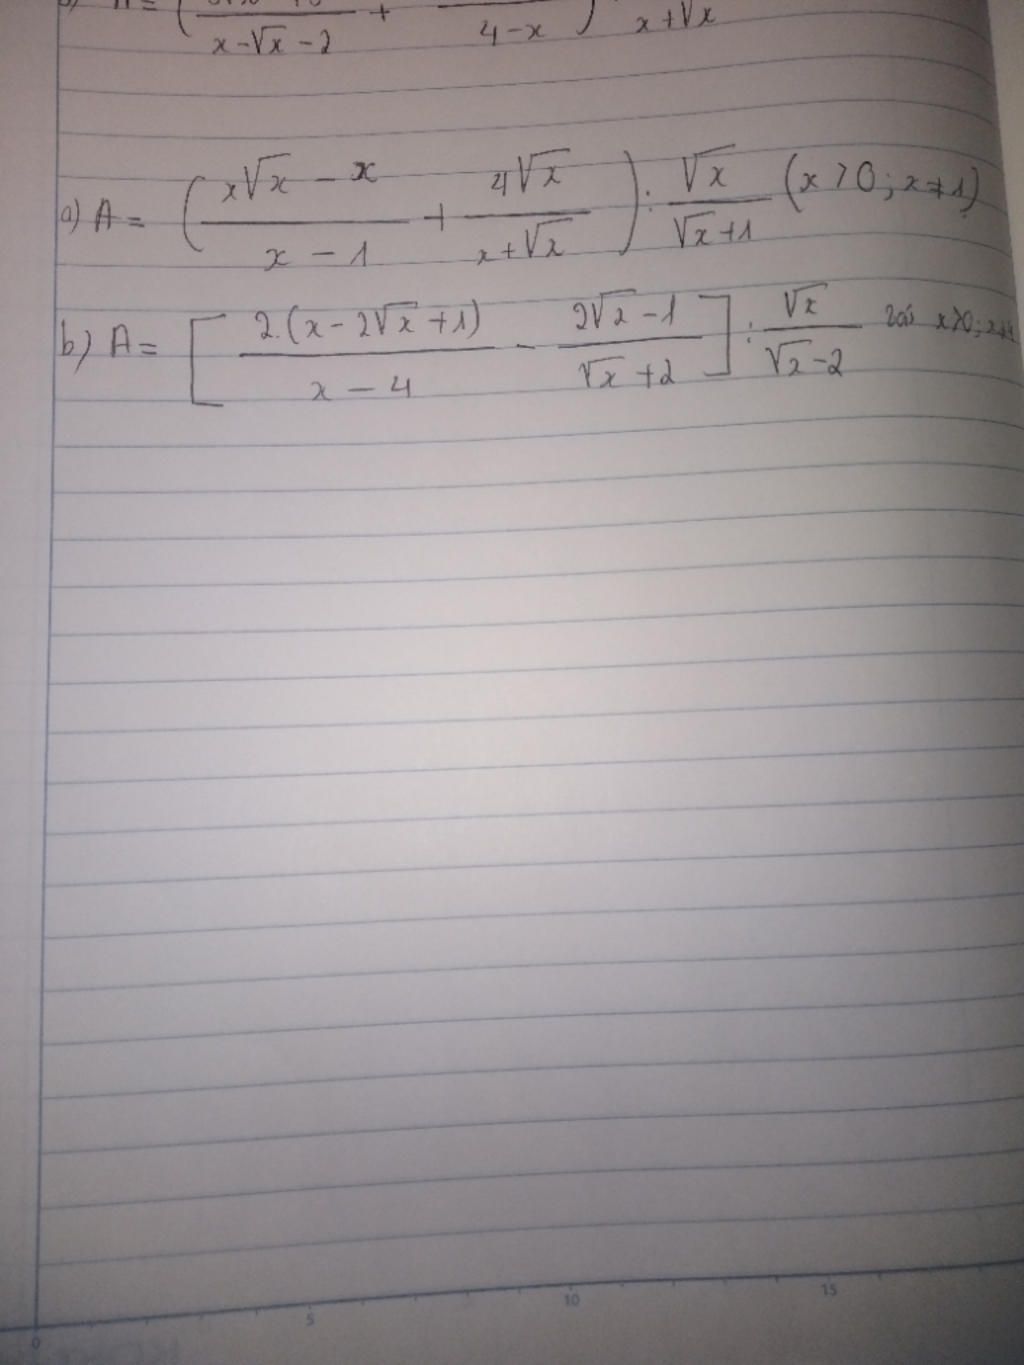 A = ( / (x-√x-2) + / (4-x) ) x+√x
a) A = ( (x√x - x)/(x - 1) + (4√x)/(x+√x) ) : (√x)/(√x+1) (x > 0; x ≠ 1)
b) A = [ (2.(x-2√x+1))/(x - 4) - (2√x-1)/(√x+2) ] : (√x)/(√x-2) với x>0; x≠4
0 5 10 15